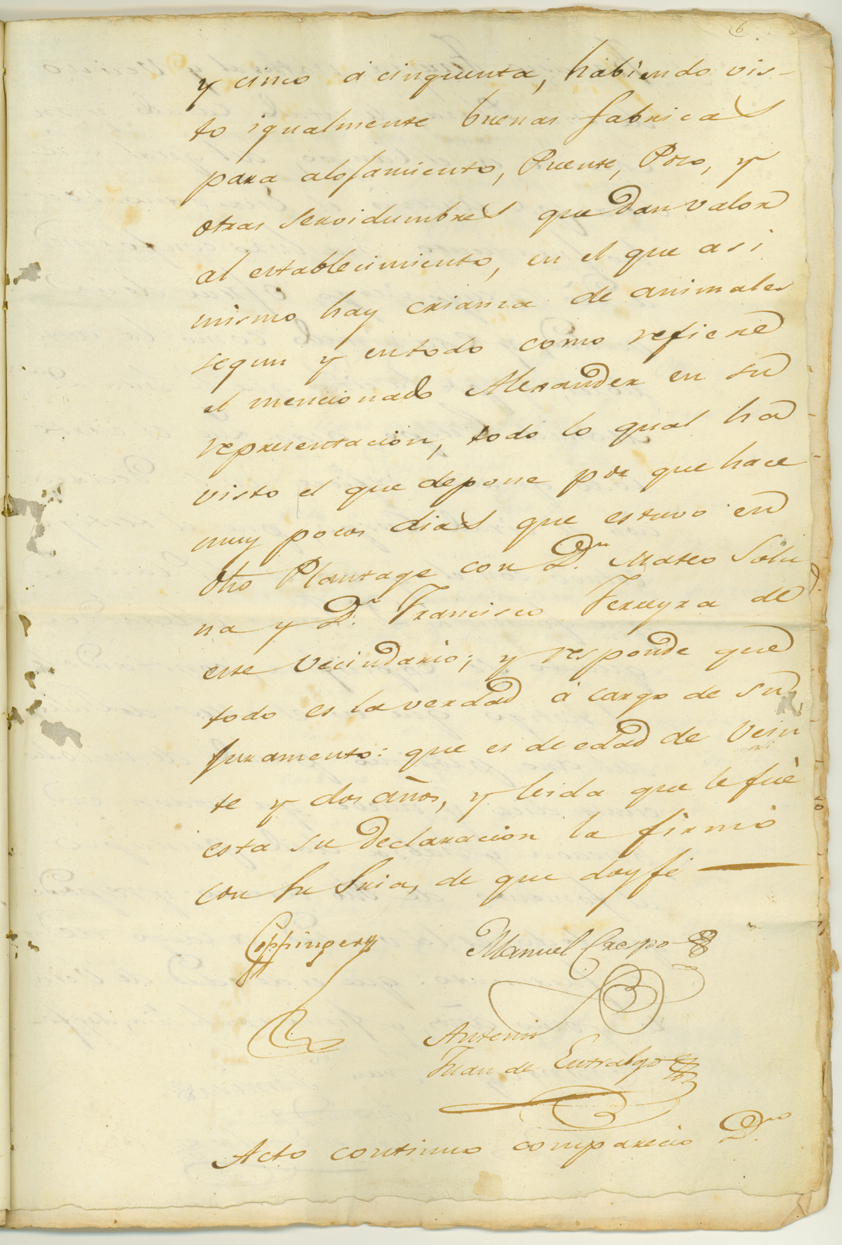 6
y cinco á cinquenta, habiendo vis-
to igualmente buenas fabricas
para alojamiento, Puente, Pozo, y
otras servidumbres que dan valor
al establecimiento, en el que asi
mismo hay crianza de animales
segun y entodo como refiere
el mencionado Alexander en su
representacion, todo lo qual ha
visto el que depone por que hace
muy pocos dias que estuvo en
dho Plantage con Dn. Mateo Soli
na y Dn. Francisco Ferreyra de
este vecindario; y responde que
todo es la verdad á cargo de su
juramento: que es de edad de vein
te y dos años, y leida que le fué
esta su declaracion la firmó
con su Sria, de que doy fé
Coppinger
Manuel Crespo
Antemi
Juan de Entralgo
Acto continuo comparecio Dn